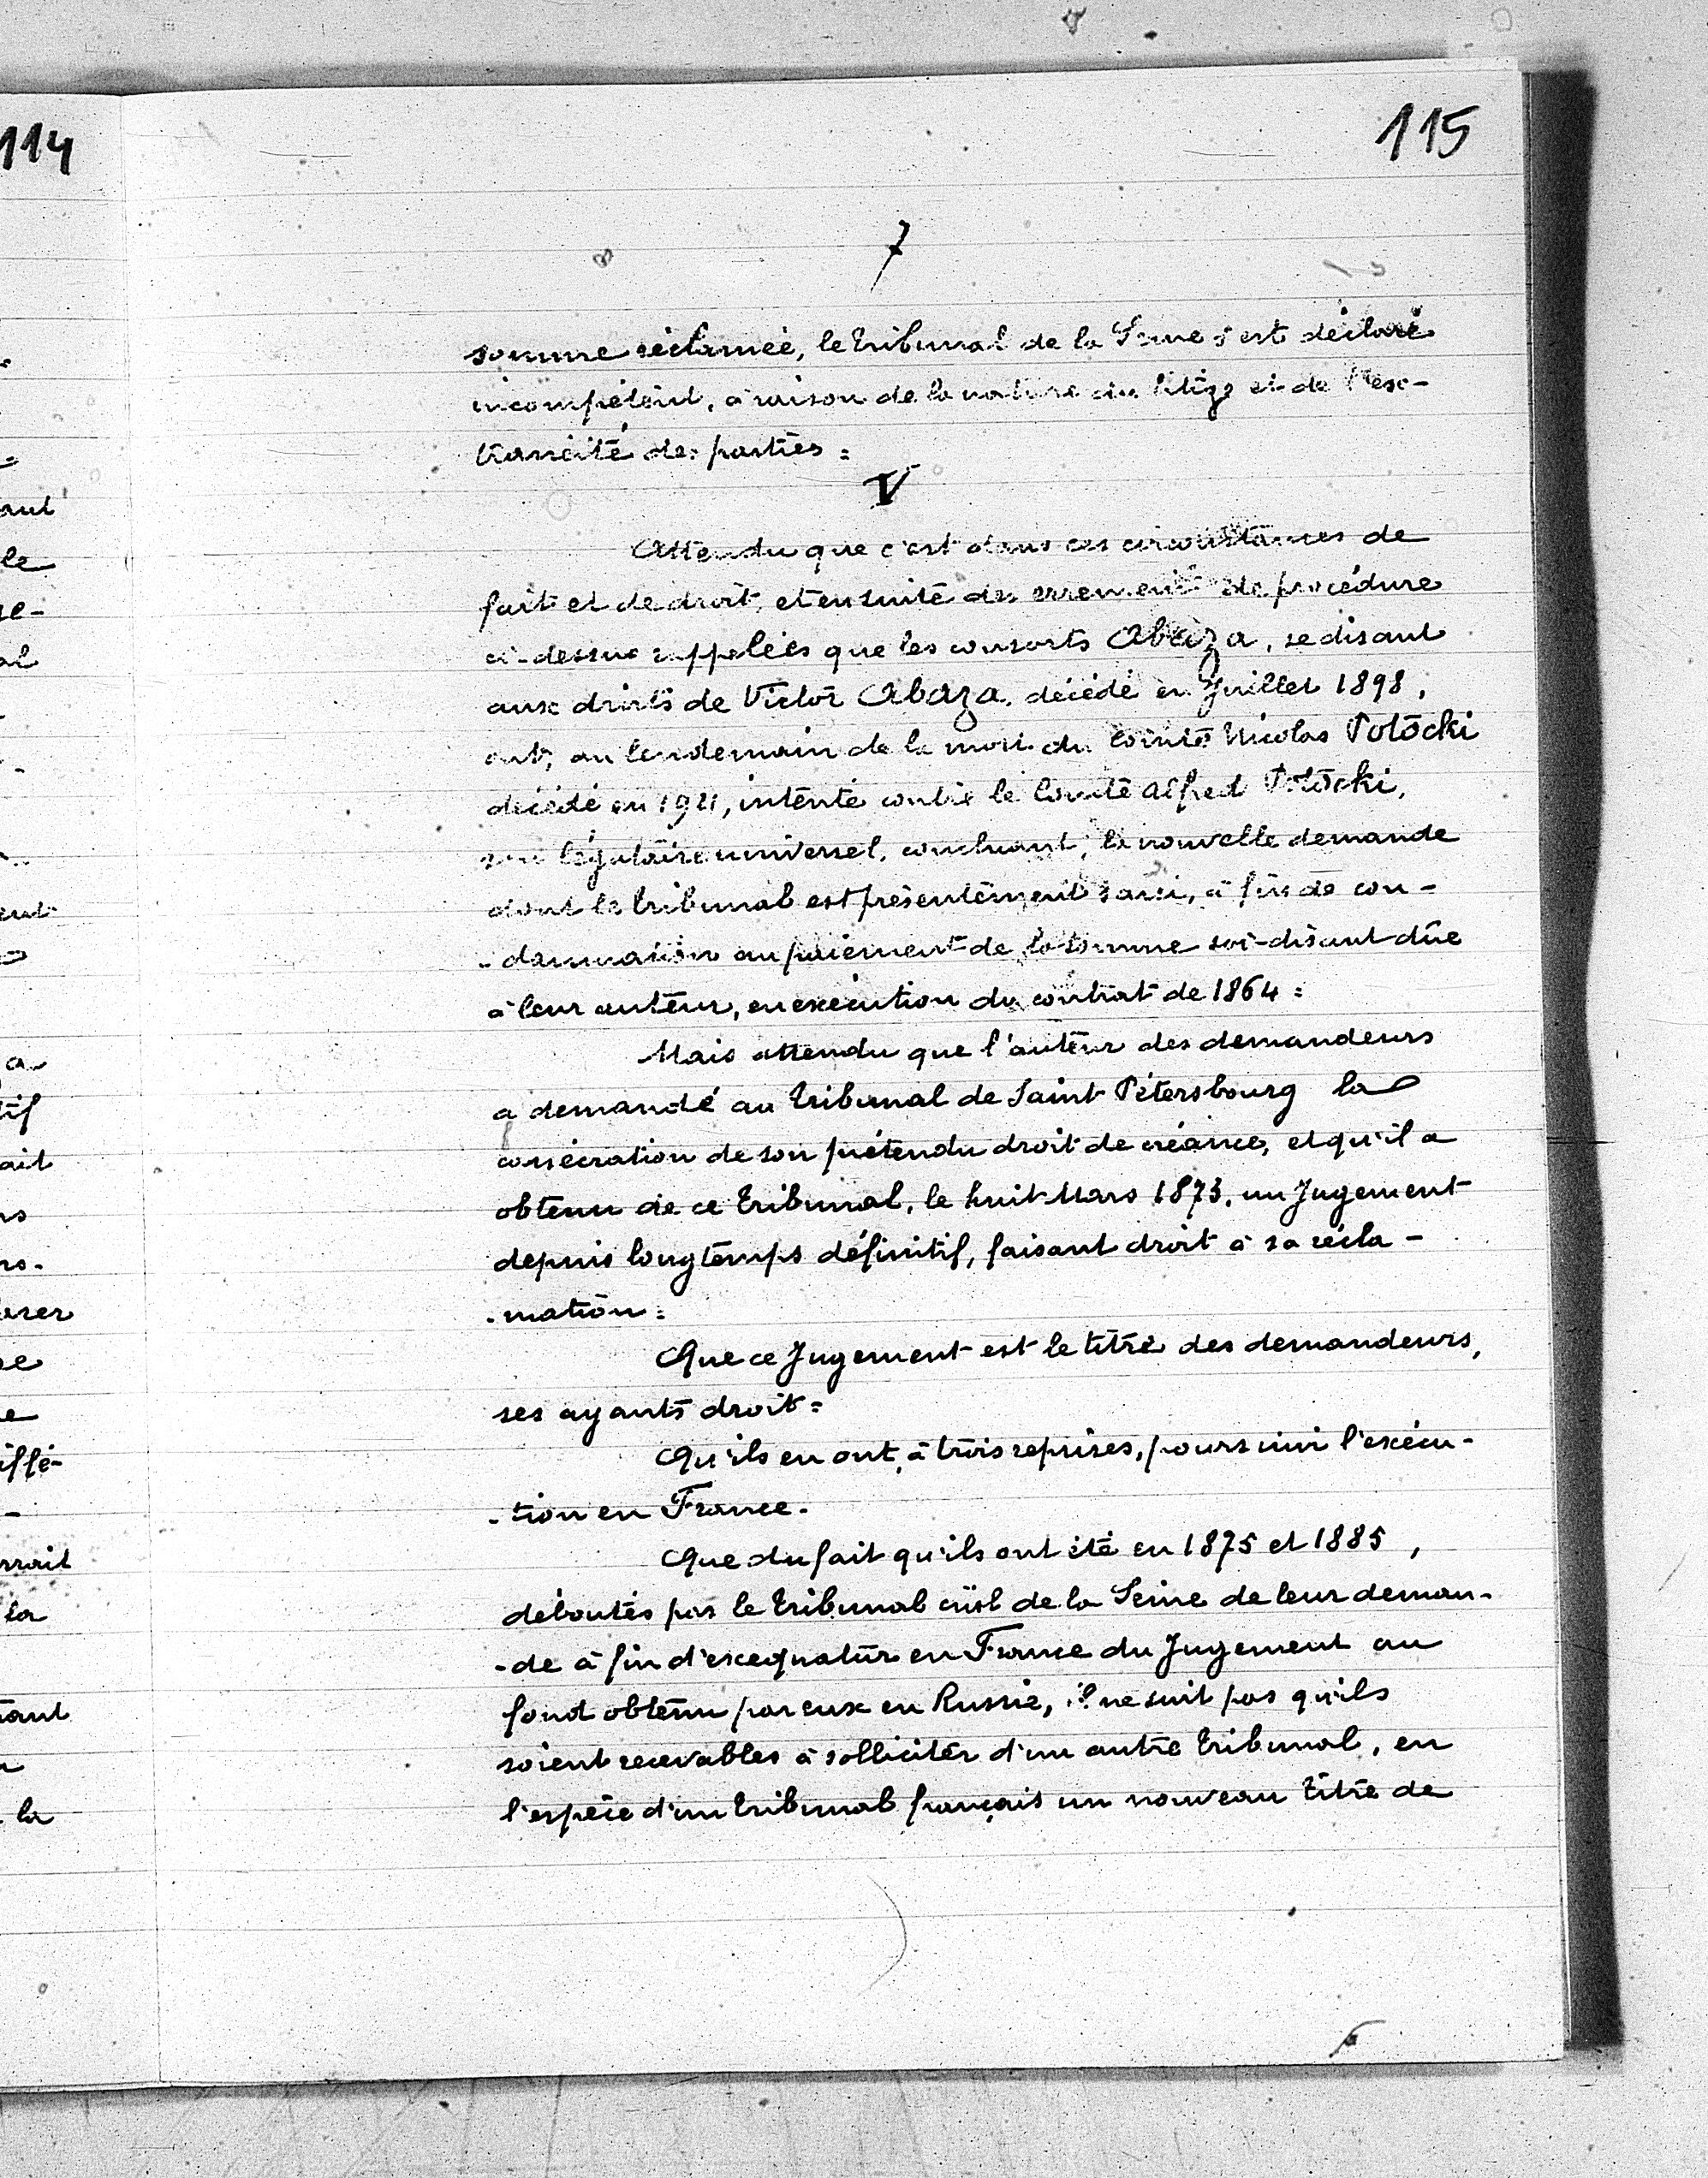 114
115
7
somme réclamée, le tribunal de la Seine s'est déclaré
incompétent, à raison de la nature du litige et de l'ex-
tranéité des parties =
V
Attendu que c'est dans ces circonstances de
fait et de droit, et ensuite des errements de procédure
ci-dessus rappelées que les consorts Abaza, se disant
aux droits de Victor Abaza, décédé en Juillet 1898,
ont, au lendemain de la mort du Comte Nicolas Potocki
décédé en 1921, intenté contre le Comte Alfred Potocki,
son légataire universel, concluant, la nouvelle demande
dont le tribunal est présentement saisi, à fin de con-
-damnation au paiement de la somme soi-disant dûe
à leur auteur, en exécution du contrat de 1864 =
Mais attendu que l'auteur des demandeurs
a demandé au tribunal de Saint Pétersbourg la
consécration de son prétendu droit de créance, et qu'il a
obtenu de ce tribunal, le huit Mars 1873, un Jugement
depuis longtemps définitif, faisant droit à sa récla-
-mation =
Que ce Jugement est le titre des demandeurs,
ses ayants droit =
Qu'ils en ont, à trois reprises, poursuivi l'exécu-
-tion en France.
Que du fait qu'ils ont été en 1875 et 1885,
déboutés par le tribunal civil de la Seine de leur deman-
-de à fin d'exequatur en France du Jugement au
fond obtenu par eux en Russie, il ne suit pas qu'ils
soient recevables à solliciter d'un autre tribunal, en
l'espèce d'un tribunal français un nouveau titre de